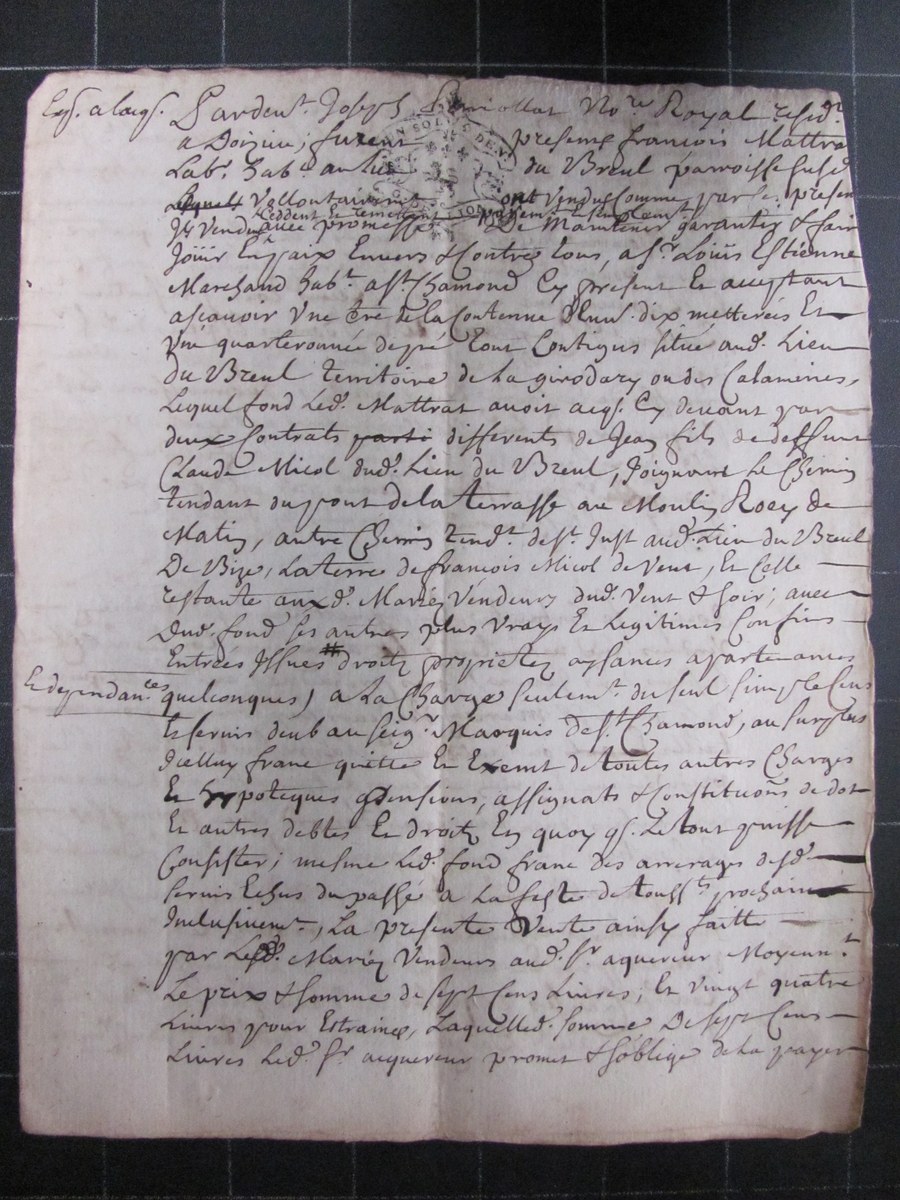 Exp. a lacq.
Pardev.t Joseph No.re Royal resid.t
a Doizieu, furent presens françois Mattrat
Lab.r hab.t au lieu du Breul parroisse susd.
Lesquels Vollontairement ont Vendu comme par le present
ceddent et remettent
Ils Vendent avec promesse De Maintenir garantir & faire
Joüir En paix Envers & Contre tous, a s.r Loüis Estienne
Marchand hab.t a s.t Chamond Cy present Et acceptant
ascavoir Vne tre de la Contenue d'Env. dix metterées Et
Vne quarteronnée de pré tout Contigus situé aud. Lieu
du Breul territoire de La girodary ou des Calamines,
Lequel fond Led. Mattrat avoit acq. Cy devant par
deux Contrats parti differents de Jean fils de deffunt
Claude Micol dud. Lieu du Breul, Joignant Le Chemin
tendant du pont de la terrasse au Moulin Roey de
Matin, autre Chemin tend.t de s.t Just aud. Lieu du Breul
De Bize, La terre de françois Micol de Vent, Et Celle
restante auxd. Mariez Vendeurs dud. Vent & soir; avec
Dud. fond ses autres plus Vrays Et Legitimes Confins
Entrées Issues # droitz proprietez aysances apartenances
# Et dependan.ces
quelconques, a La Charge seulem.t du seul simple Cens
Et servis deub au seig.r Marquis de s.t Chamond, au surplus
d'icelluy franc quitte Et Exemt de toutes autres Charges
Et Hypoteques pensions, assignats & Constitutions de dot
Et autres debtes Et droitz En quoy q. Le tout puisse
Consister; mesme Led. fond franc des arrerages desd.
servis Echus du passé a La feste de touss.ts prochain
Inclusivem.t, La presente Vente ainsy faitte
par Lesd. Mariez Vendeurs aud. s.r aquereur Moyenn.t
Le prix & somme de sept Cens Livres, Et Vingt quatre
Livres pour Estraines, Laquelled. somme De sept Cens
Livres Led. s.r acquereur promet & s'oblige de La payer